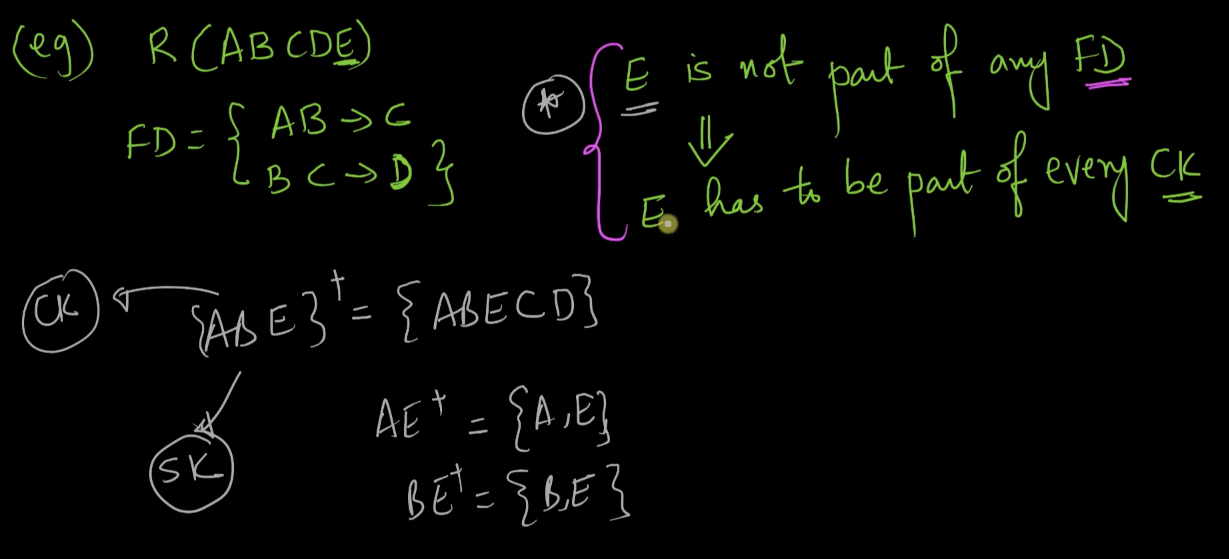 (eg) R(ABCDE)
FD = { AB → C
BC → D }
* { E is not part of any FD
⇓
E has to be part of every CK
CK ← {ABE}⁺ = {ABECD}
SK
AE⁺ = {A,E}
BE⁺ = {B,E}